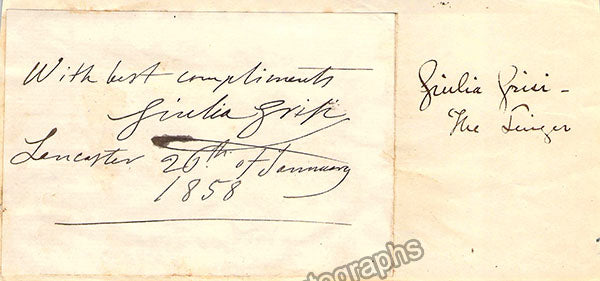 With best compliments
Giulia Grisi
Lancaster 26th of January
1858
Giulia Grisi -
The Singer
tographs